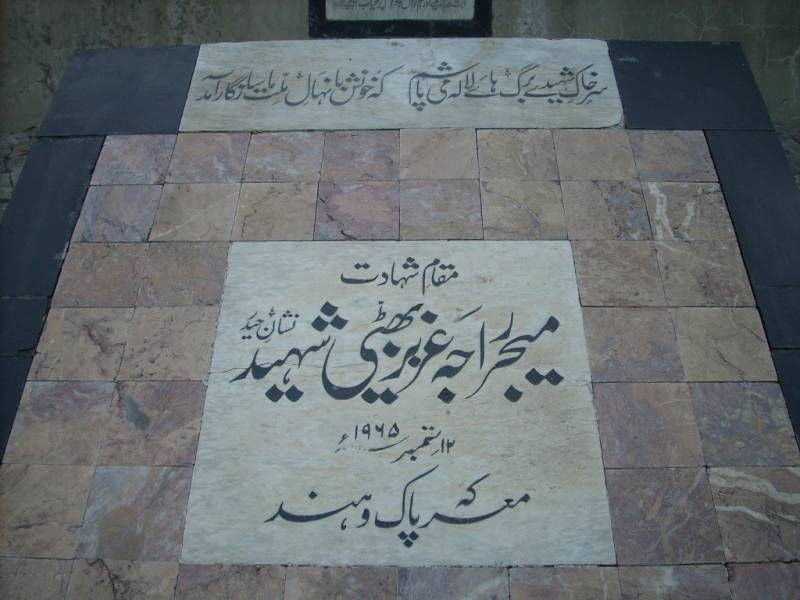 سرِ خاکِ شہیدے برگ ہائے لالہ می پاشم کہ خونش با نہالِ ملتِ ما سازگار آمد
مقامِ شہادت
میجر راجہ عزیز بھٹی شہید نشانِ حیدر
۱۲ ستمبر ۱۹۶۵ء
معرکہ پاک و ہند